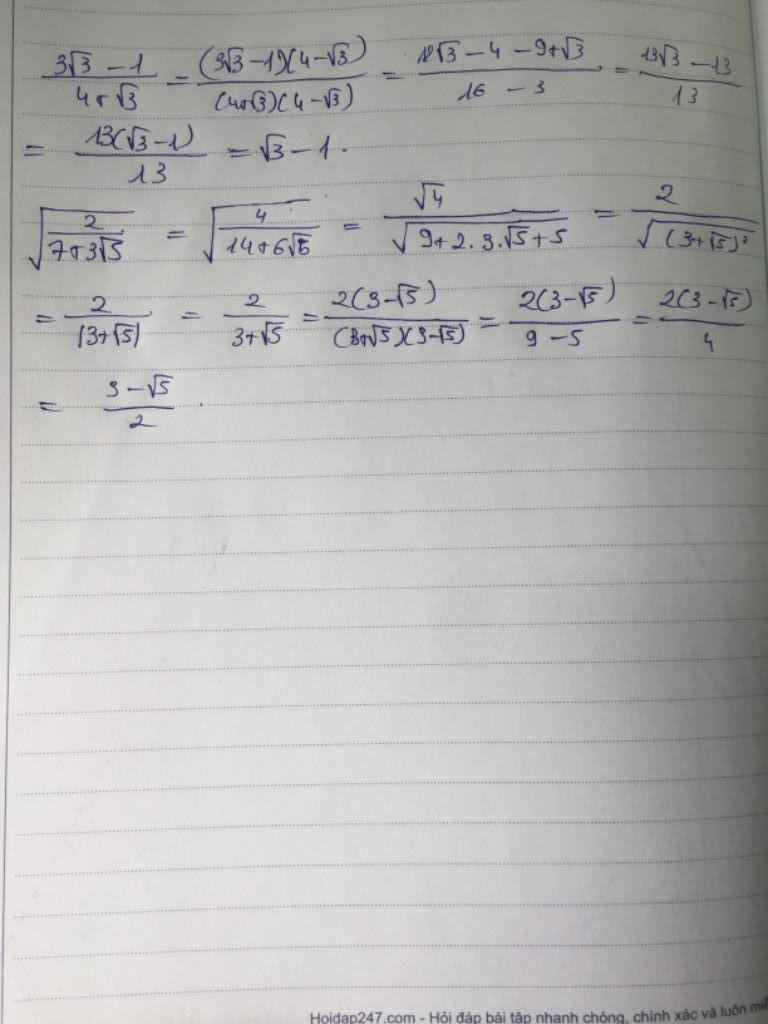 (3√3 - 1)/(4+√3) = ((3√3 - 1)(4-√3))/((4+√3)(4-√3)) = (12√3 - 4 - 9+√3)/(16 - 3) = (13√3 - 13)/13
= (13(√3 - 1))/13 = √3 - 1.
√(2/(7+3√5)) = √(4/(14+6√5)) = √4/√(9+2.3.√5+5) = 2/√((3+√5)²)
= 2/|3+√5| = 2/(3+√5) = (2(3-√5))/((3+√5)(3-√5)) = (2(3-√5))/(9-5) = (2(3-√5))/4
= (3-√5)/2.
Hoidap247.com - Hỏi đáp bài tập nhanh chóng, chính xác và luôn miễ